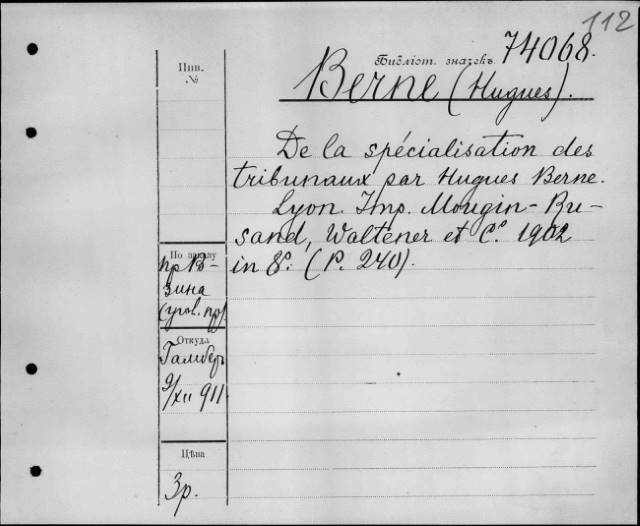 112
Инв.
№
Библіот. значекъ 74068.
Berne (Hugues).
De la spécialisation des
tribunaux par Hugues Berne.
Lyon. Imp. Mougin-Ru-
sand, Waltener et Cº. 1902
in 8º. (P. 240).
По заказу
пр В-
зина
(угол. пр)
Откуда
Гамбер
9/XII 911
Цѣна
3р.